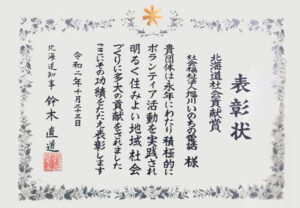 表彰状
北海道社会貢献賞
社会福祉法人旭川いのちの電話 様
貴団体は永年にわたり積極的に
ボランティア活動を実践され
明るく住みよい地域社会
づくりに多大の貢献をされました
ここにその功績をたたえ表彰します
令和二年十月二十三日
北海道知事 鈴木直道